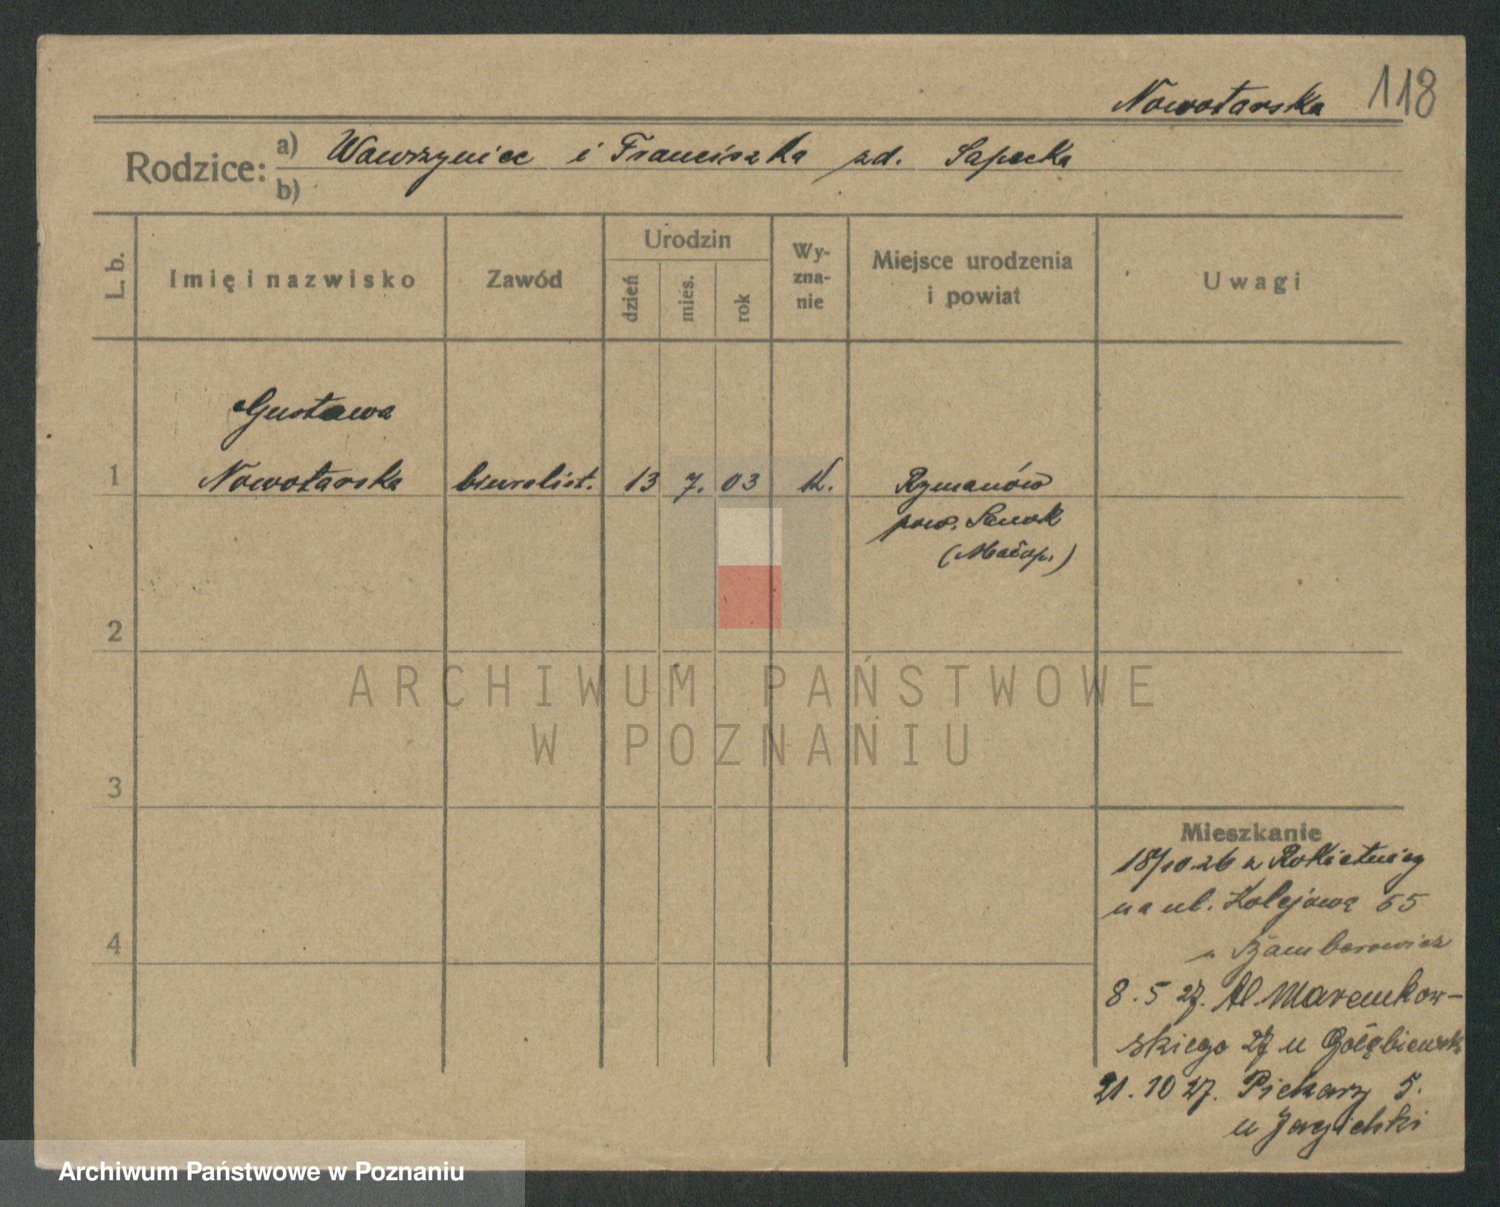 Nowotarska 118
Rodzice: a) Wawrzyniec i Franciszka zd. Sapecka
b)
L. b. Imię i nazwisko Zawód Urodzin dzień mies. rok Wyznanie Miejsce urodzenia i powiat Uwagi
Gustawa
1 Nowotarska biuralist. 13 7. 03 k. Rymanów
pow. Sanok
(Małop.)
2
ARCHIWUM PAŃSTWOWE
W POZNANIU
3
Mieszkanie
18/10.26 z Rokietnicy
na ul. Kolejową 55
u Bamberowicz
4
8. 5 27. Al. Marcinkow-
skiego 27 u
21. 10 27. Piekary 5.
u
Archiwum Państwowe w Poznaniu